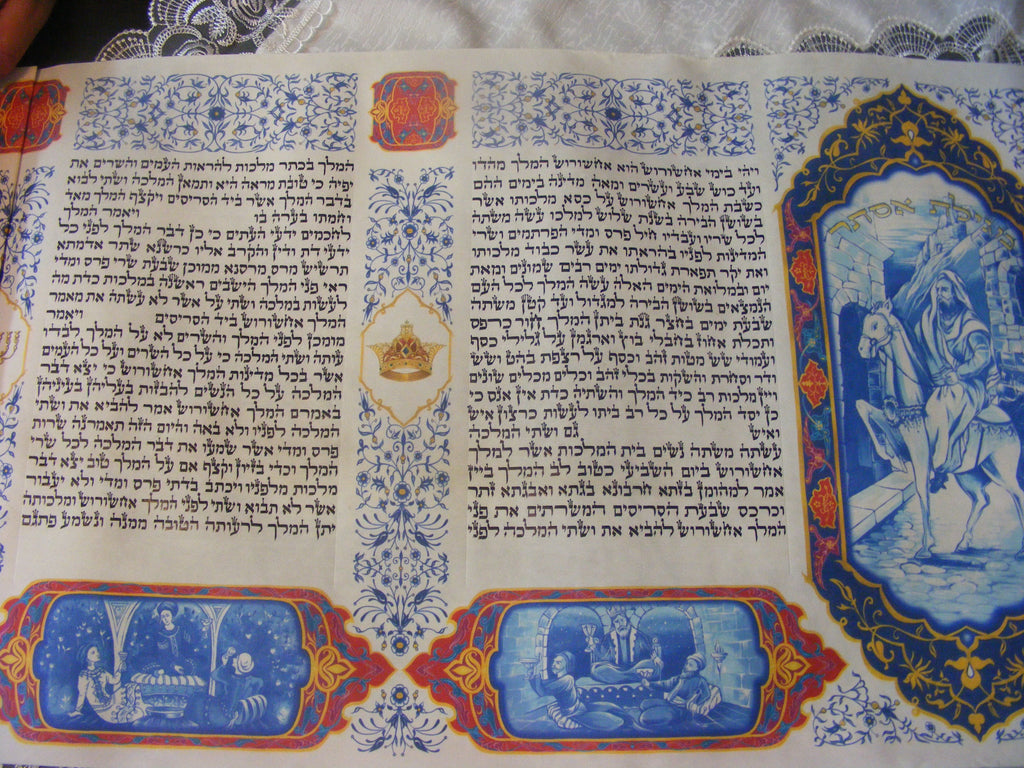 מגילת אסתר
ויהי בימי אחשורוש הוא אחשורוש המלך מהדו
ועד כוש שבע ועשרים ומאה מדינה בימים ההם
כשבת המלך אחשורוש על כסא מלכותו אשר
בשושן הבירה בשנת שלוש למלכו עשה משתה
לכל שריו ועבדיו חיל פרס ומדי הפרתמים ושרי
המדינות לפניו בהראתו את עשר כבוד מלכותו
ואת יקר תפארת גדולתו ימים רבים שמונים ומאת
יום ובמלואת הימים האלה עשה המלך לכל העם
הנמצאים בשושן הבירה למגדול ועד קטן משתה
שבעת ימים בחצר גנת ביתן המלך חור כרפס
ותכלת אחוז בחבלי בוץ וארגמן על גלילי כסף
ועמודי שש מטות זהב וכסף על רצפת בהט ושש
ודר וסחרת והשקות בכלי זהב וכלים מכלים שונים
ויין מלכות רב כיד המלך והשתיה כדת אין אנס כי
כן יסד המלך על כל רב ביתו לעשות כרצון איש
ואיש גם ושתי המלכה
עשתה משתה נשים בית המלכות אשר למלך
אחשורוש ביום השביעי כטוב לב המלך ביין
אמר למהומן בזתא חרבונא בגתא ואבגתא זתר
וכרכס שבעת הסריסים המשרתים את פני
המלך אחשורוש להביא את ושתי המלכה לפני
המלך בכתר מלכות להראות העמים והשרים את
יפיה כי טובת מראה היא ותמאן המלכה ושתי לבוא
בדבר המלך אשר ביד הסריסים ויקצף המלך מאד
וחמתו בערה בו ויאמר המלך
לחכמים ידעי העתים כי כן דבר המלך לפני כל
ידעי דת ודין והקרב אליו כרשנא שתר אדמתא
תרשיש מרס מרסנא ממוכן שבעת שרי פרס ומדי
ראי פני המלך הישבים ראשנה במלכות כדת מה
לעשות במלכה ושתי על אשר לא עשתה את מאמר
המלך אחשורוש ביד הסריסים ויאמר
מומכן לפני המלך והשרים לא על המלך לבדו
עותה ושתי המלכה כי על כל השרים ועל כל העמים
אשר בכל מדינות המלך אחשורוש כי יצא דבר
המלכה על כל הנשים להבזות בעליהן בעיניהן
באמרם המלך אחשורוש אמר להביא את ושתי
המלכה לפניו ולא באה והיום הזה תאמרנה שרות
פרס ומדי אשר שמעו את דבר המלכה לכל שרי
המלך וכדי בזיון וקצף אם על המלך טוב יצא דבר
מלכות מלפניו ויכתב בדתי פרס ומדי ולא יעבור
אשר לא תבוא ושתי לפני המלך אחשורוש ומלכותה
יתן המלך לרעותה הטובה ממנה ונשמע פתגם